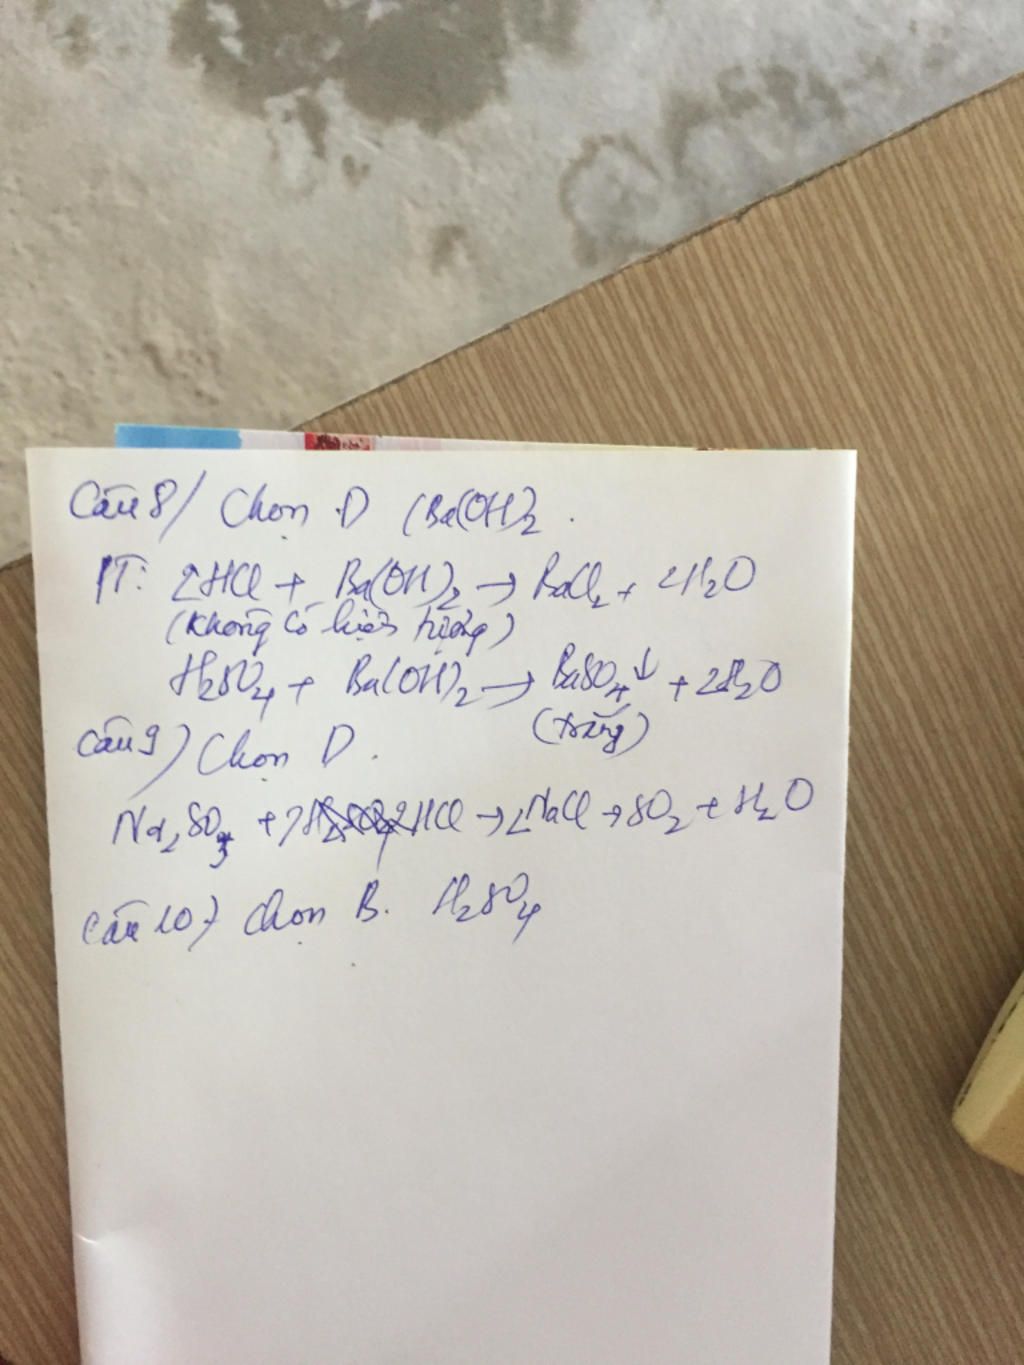 Câu 8/ Chọn D (Ba(OH)2.
PT: 2HCl + Ba(OH)2 → BaCl2 + 2H2O
(Không có hiện tượng)
H2SO4 + Ba(OH)2 → BaSO4↓ + 2H2O
(trắng)
Câu 9) Chọn D.
Na2SO3 + 2HCl → 2NaCl + SO2 + H2O
Câu 10) Chọn B. H2SO4